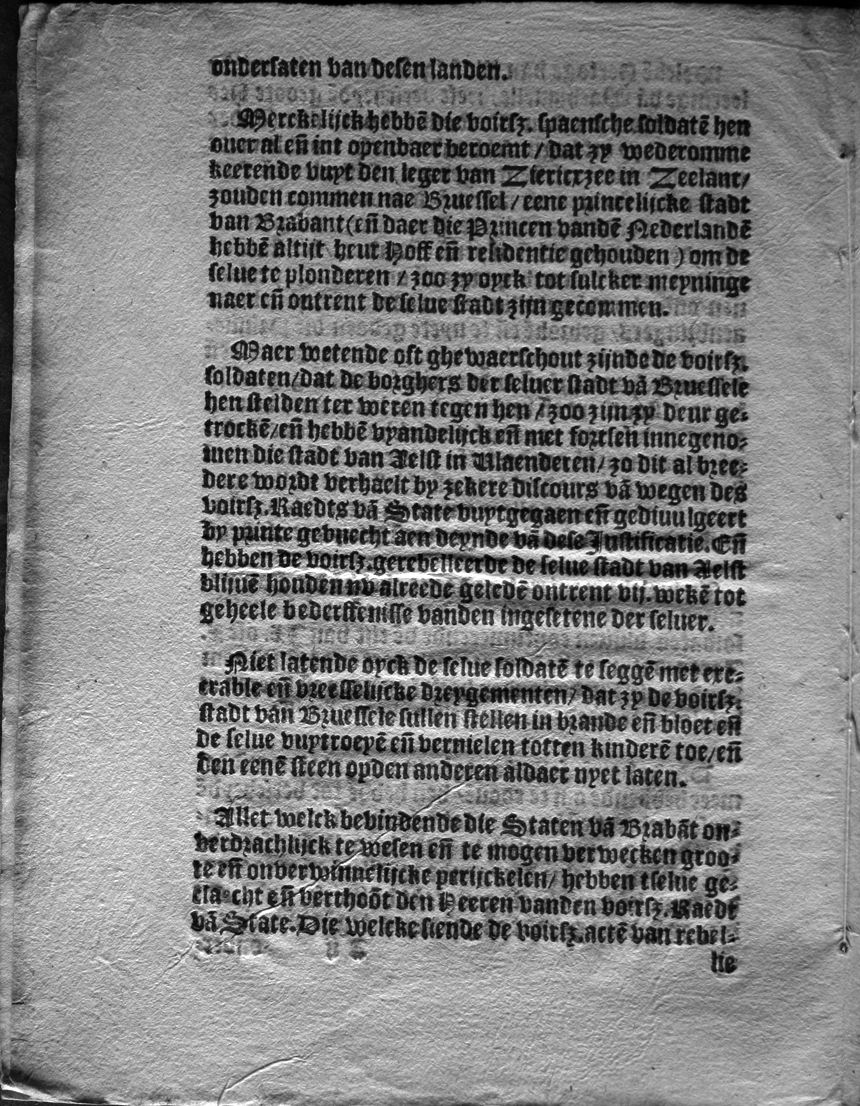 ondersaten van desen landen.
Merckelijck hebbē die voirsz. spaensche soldatē hen
ouer al eñ int openbaer beroemt / dat zy wederomme
keerende vuyt den leger van Ziericxzee in Zeelant/
zouden commen nae Bruessel / eene princelijcke stadt
van Brabant (eñ daer die Princen vandē Nederlandē
hebbē altijt heur Hoff eñ residentie gehouden ) om de
selue te plonderen / zoo zy oyck tot sulcker meyninge
naer eñ ontrent de selue stadt zijn gecommen.
Maer wetende oft ghewaerschout zijnde de voirsz.
soldaten/dat de borghers der seluer stadt vā Bruessele
hen stelden ter weren tegen hen / zoo zijn zy deur ge-
trockē/eñ hebbē vyandelijck eñ met fortsen innegeno-
men die stadt van Aelst in Vlaenderen/ zo dit al bree-
dere wordt verhaelt by zekere discours vā wegen des
voirsz. Raedts vā State vuytgegaen eñ gediuulgeert
by printe gevuecht aen deynde vā dese Iustificatie. Eñ
hebben de voirsz. gerebelleerde de selue stadt van Aelst
blijuē houden nv alreede geledē ontrent vij. wekē tot
geheele bederffenisse vanden ingesetene der seluer.
Niet latende oyck de selue soldatē te seggē met exe-
crable eñ vreesselijcke dreygementen/ dat zy de voirsz.
stadt van Bruessele sullen stellen in brande eñ bloet eñ
de selue vuytroeyē eñ vernielen totten kinderē toe/eñ
den eenē steen opden anderen aldaer nyet laten.
Allet welck bevindende die Staten vā Brabāt on-
verdrachlijck te wesen eñ te mogen verwecken groo-
te eñ onverwinnelijcke perijckelen/ hebben tselue ge-
claecht eñ verthoōt den Heeren vanden voirsz. Raedt
vā State. Die welcke siende de voirsz. actē van rebel-
lie